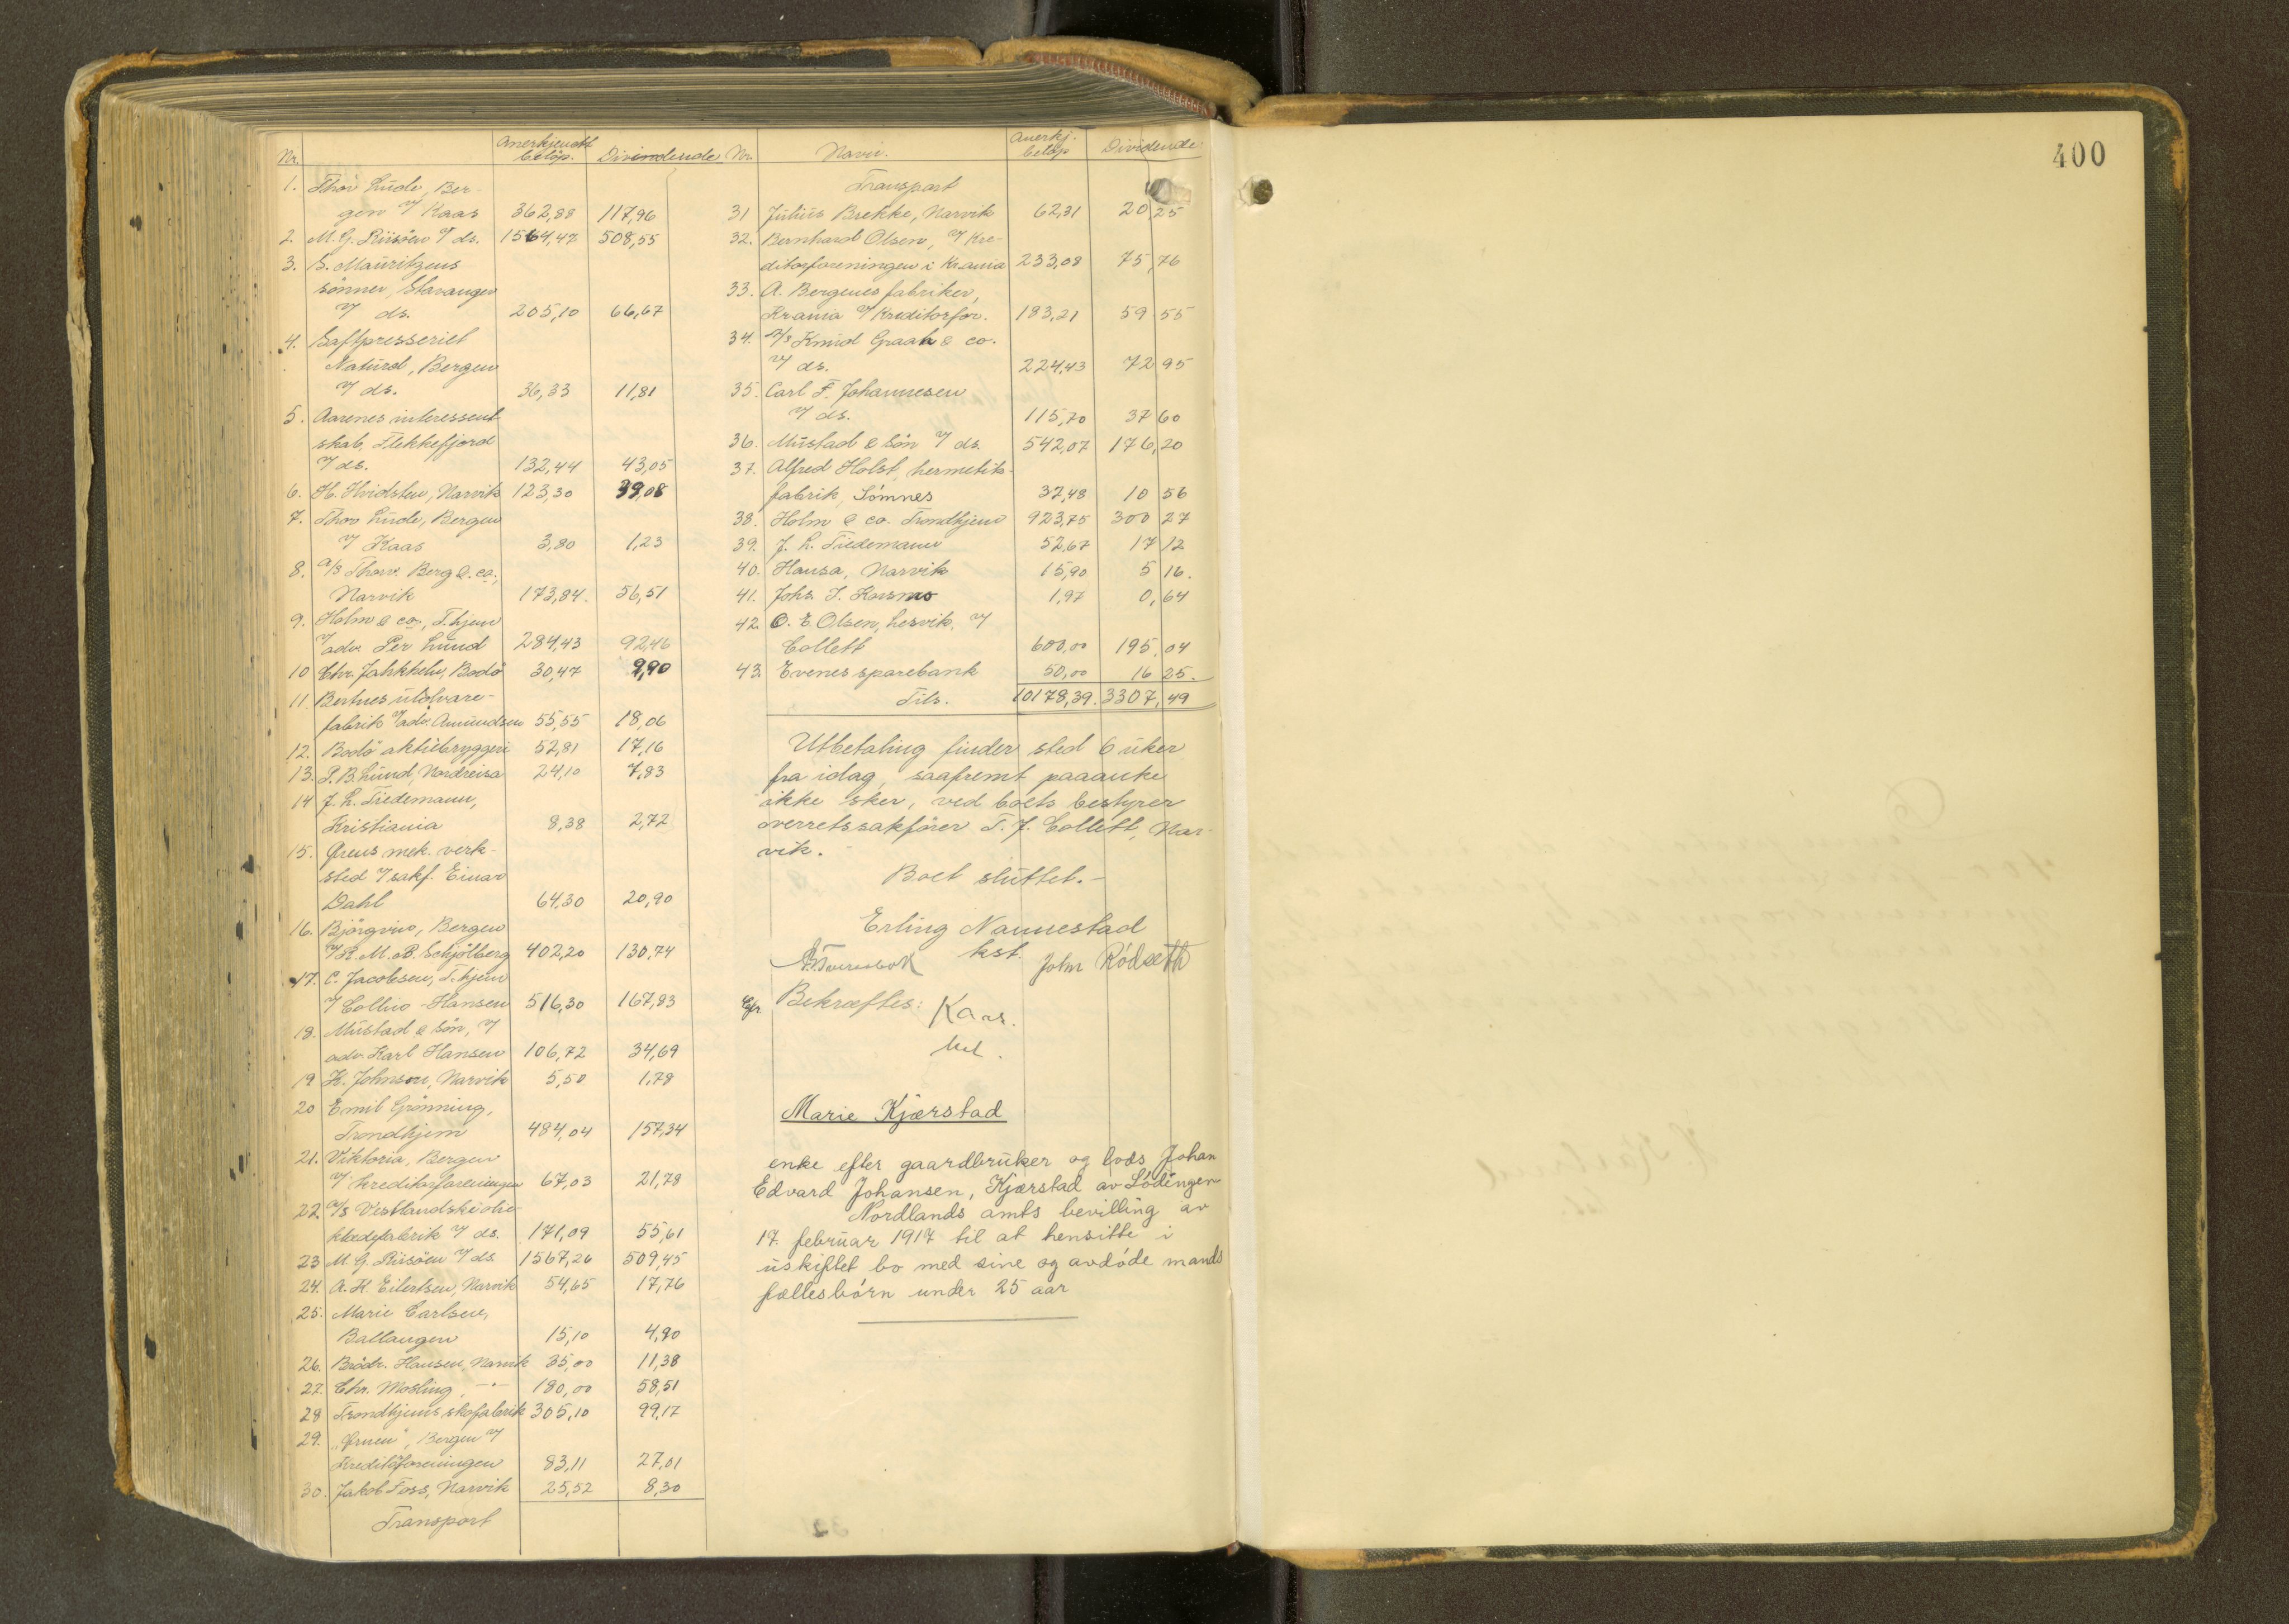 Nr. Anerkjendt beløp. Dividende
1. Thor Lude, Ber-
gen v/ Kaas 362,88 117,96
2. M. G. Riisöen v/ ds. 1564,47 508,55
3. S. Mauritzens
sønner, Stavanger
v/ ds. 205,10 66,67
4. Saftpresseriet
Natural, Bergen
v/ ds. 36,33 11,81
5. Aarenes interessent
skab, Flekkefjord
v/ ds. 132,44 43,05
6. H. Hvidsten, Narvik 123,30 39,08
7. Thor Lude, Bergen
v/ Kaas 3,80 1,23
8. A/S Thorv. Berg & co.,
Narvik 173,84. 56,51
9. Holm & co., T.hjem
v/ adv. Per Lund 284,43 92,46
10 Chr. Jahkkeln, Bodö 30,47 9,90
11 Bertnes uldvare-
fabrik v/ adv. Amundsen 55,55 18,06
12. Bodö aktiebryggeri 52,81 17,16
13. P. B. Lund, Nordreisa 24,10 7,83
14 J. L. Tiedemann,
Kristiania 8,38 2,72
15. Ørens mek. verk-
sted v/ sakf. Einar
Dahl 64,30 20,90
16. Bjørgvin, Bergen
v/ R. M. B. Schjölberg 402,20 130,74
17. C. Jacobsen, T.hjem
v/ Collin-Hansen 516,30 167,83
18. Mustad & Sön, v/
adv. Karl Hansen 106,72 34,69
19 K. Johnson, Narvik 5,50 1,78
20 Emil Grönning,
Trondhjem 484,04 157,34
21. Viktoria, Bergen
v/ Kreditorforeningen 67,03 21,78
22. A/S Vestlandske olie-
klædefabrik v/ ds. 171,09 55,61
23 M. G. Riisöen v/ ds. 1567,26 509,45
24. A. K. Eilertsen, Narvik 54,65 17,76
25. Marie Carlsen,
Ballangen 15,10 4,90
26. Brödr. Hansen, Narvik 35,00 11,38
27. Chr. Mosling, -"- 180,00 58,51
28 Trondhjems skofabrik 305,10 99,17
29. "Ørnen", Bergen v/
Kreditorforeningen 83,11 27,01
30. Jakob Foss, Narvik 25,52 8,30
Transport
Nr. Navn. Anerkj. beløp Dividende
Transport
31 Julius Brekke, Narvik 62,31 20,25
32. Bernhard Olsen, v/ Kre-
ditorforeningen i Krania 233,08 75,76
33. A. Bergenes fabriker,
Krania v/ Kreditorfor. 183,21 59 55
34. A/S Knud Graah & co.
v/ ds. 224,43 72 95
35. Carl F. Johannesen
v/ ds. 115,70 37 60
36. Mustad & Sön v/ ds. 542,07 176,20
37. Alfred Holst, hermetik-
fabrik, Sömnes 32,48 10 56
38. Holm & co. Trondhjem 923,75 300 27
39. J. L. Tiedemann 52,67 17 12
40. Hansa, Narvik 15,90 5 16.
41. Johs. J. Kosmo 1,97 0,64
42. O. E. Olsen, Lervik, v/
Collett 600,00 195,04
43. Evenes sparebank 50,00 16 25.
Tils. 10178,39. 3307,49
Utbetaling finder sted 6 uker
fra idag, saafremt paaanke
ikke sker, ved boets bestyrer
overretssakförer T. J. Collett, Nar-
vik.
Boet sluttet.-
Erling Nannestad
kst.
John Rödseth
Bekræftes: Kaas.
Marie Kjærstad
enke efter gaardbruker og lods Johan
Edvard Johansen, Kjærstad av Lödingen
Nordlands amts bevilling av
17. februar 1917 til at hensitte i
uskiftet bo med sine og avdöde mands
fællesbörn under 25 aar
400